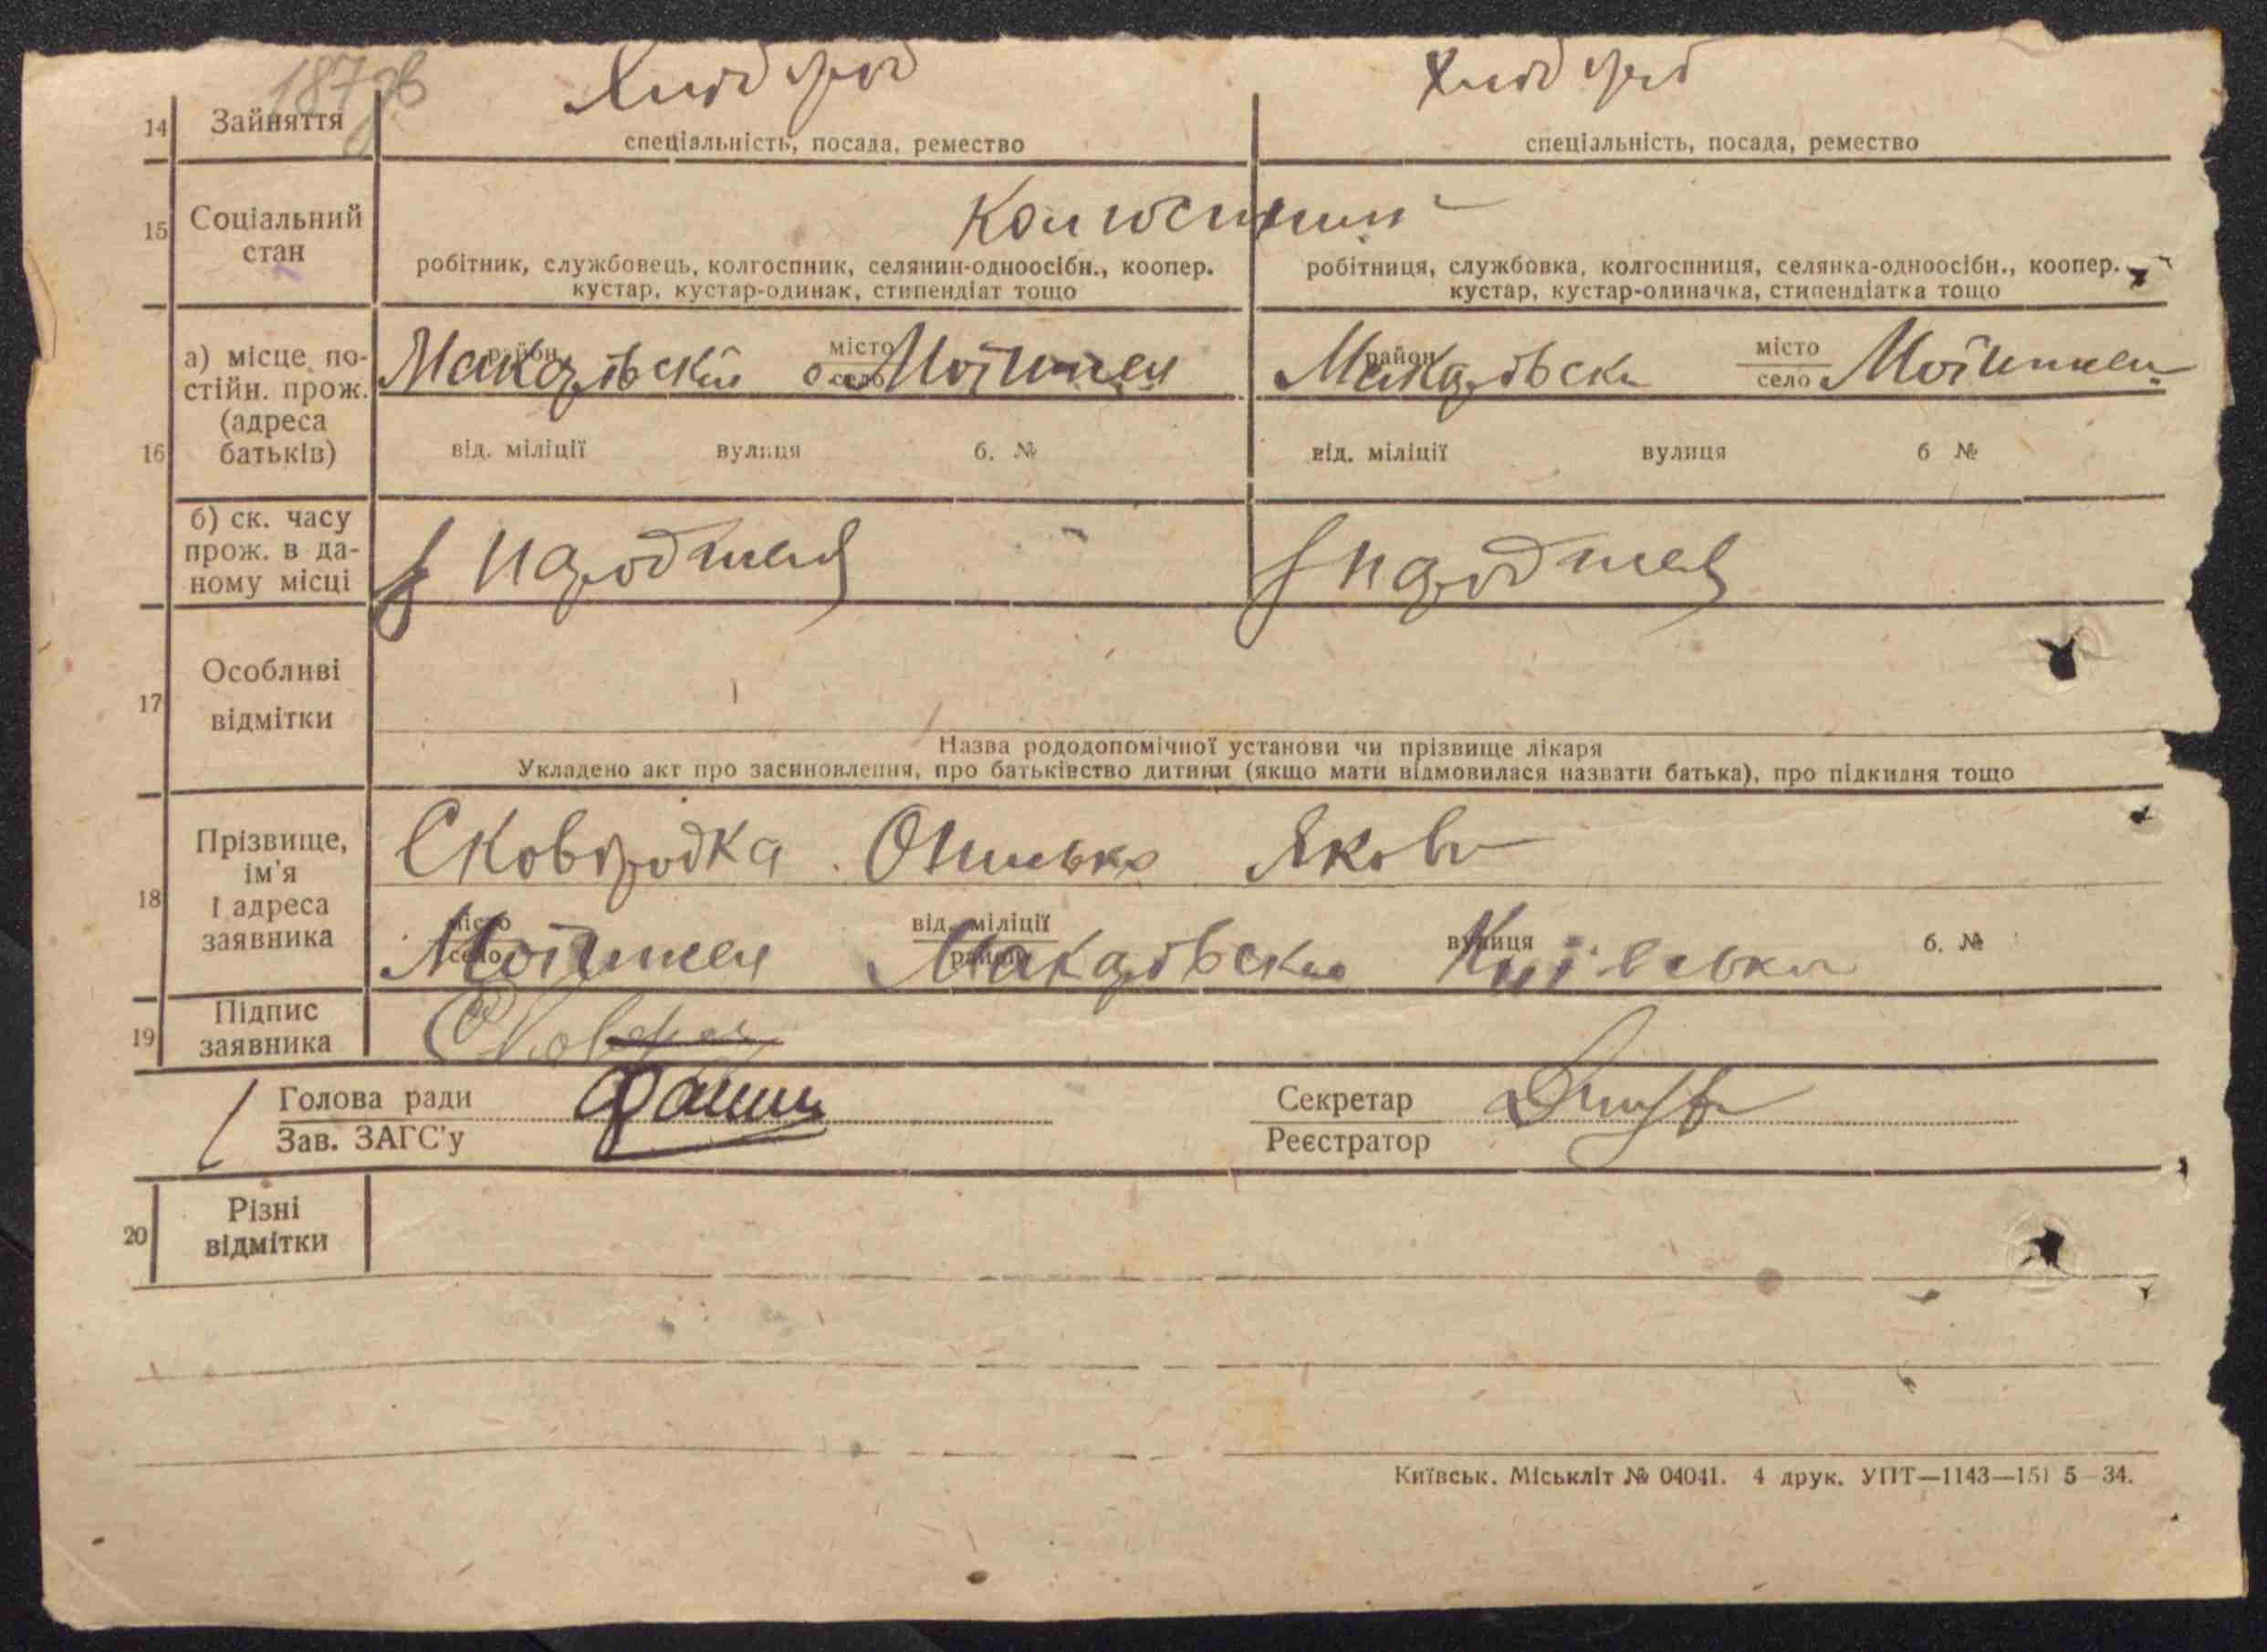 187 зв
Хлібороб Хлібороб
14 Зайняття
спеціальність, посада, ремество спеціальність, посада, ремество
15 Соціальний стан
Колгоспники
робітник, службовець, колгоспник, селянин-одноосібн., коопер. кустар, кустар-одинак, стипендіат тощо
робітниця, службовка, колгоспниця, селянка-одноосібн., коопер. кустар, кустар-одиначка, стипендіатка тощо
16 а) місце постійн. прож. (адреса батьків)
район Макарівський місто село Мотижин
район Макарівськ місто село Мотижин
від. міліції вулиця б. №
від. міліції вулиця б №
б) ск. часу прож. в даному місці
з народження з народження
17 Особливі відмітки
Назва рододопомічної установи чи прізвище лікаря
Укладено акт про засиновлення, про батьківство дитини (якщо мати відмовилася назвати батька), про підкидня тощо
18 Прізвище, ім'я і адреса заявника
Сковородка Яков
місто село Мотижин від. міліції район Макарівськ вулиця Київська б. №
19 Підпис заявника
Голова ради Секретар
Зав. ЗАГС'у Реєстратор
20 Різні відмітки
Київськ. Міськліт № 04041. 4 друк. УПТ—1143—151 5—34.